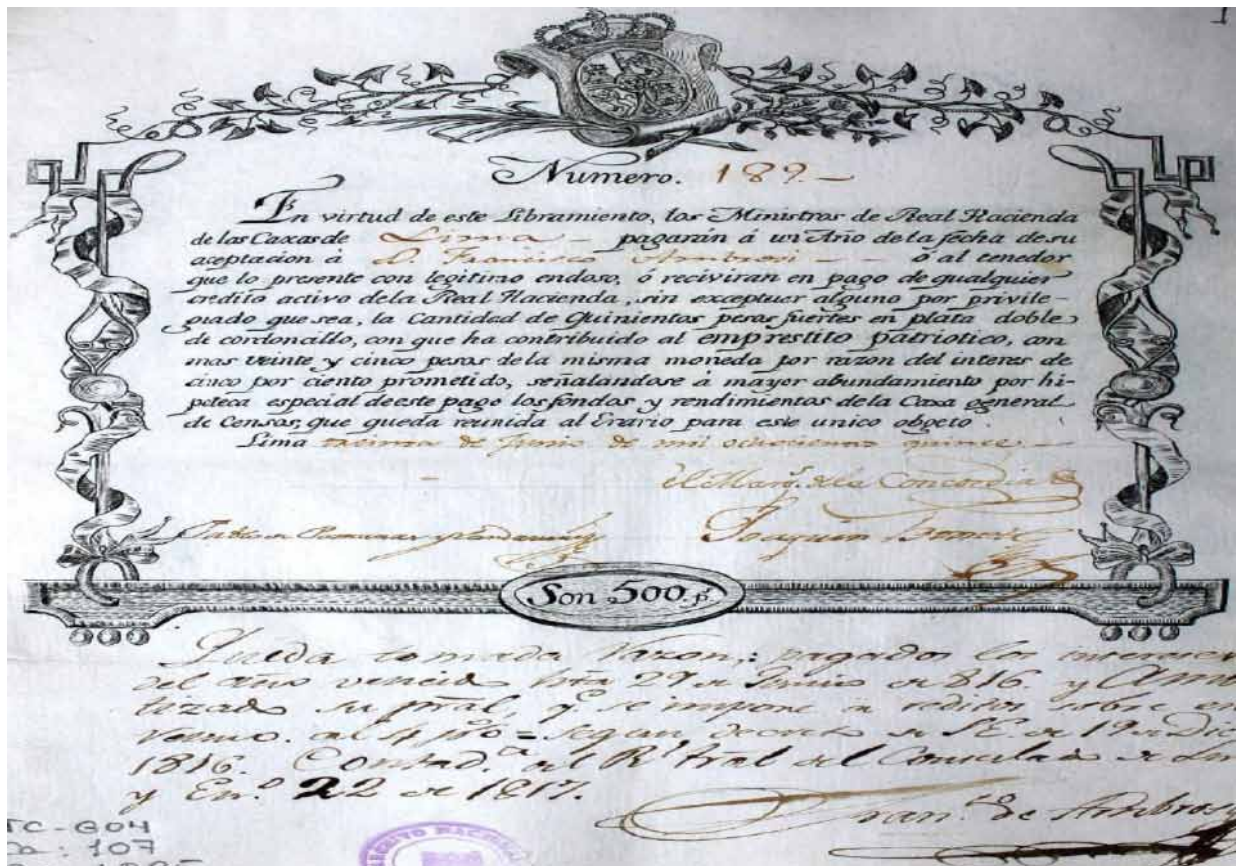 1
Numero. 189.
En virtud de este Libramiento, los Ministros de Real Hacienda
de las Caxas de Lima pagarán á un Año de la fecha de su
aceptacion á D. Francisco Ambrosi ó al tenedor
que lo presente con legitimo endoso, ó reciviran en pago de qualquier
credito activo de la Real Hacienda, sin exceptuar alguno por privile-
giado que sea, la Cantidad de Quinientos pesos fuertes en plata doble
de cordoncillo, con que ha contribuido al emprestito patriotico, con
mas veinte y cinco pesos de la misma moneda por razon del interes de
cinco por ciento prometido, señalandose á mayor abundamiento por hi-
poteca especial de este pago los fondos y rendimientos de la Caxa general
de Censos, que queda reunida al Erario para este unico obgeto.
Lima treinta de Junio de mil ochocientos quince.
el Marq.s de la Concordia
Joaquin Bonet
Son 500 p.s
Queda tomada razon, pagados los intereses
del año vencido hta 29 de Junio de 816. y Amo
tizado su pral, q.e se impone a reditos sobre
al 4 p%o = segun decreto de S.E. de 19 de Dic
1816. Contad.a del R.l Tral del Consulado de Lim
y En.o 22 de 1817.
Fran.co de Ambrosi
TC-GO4
107